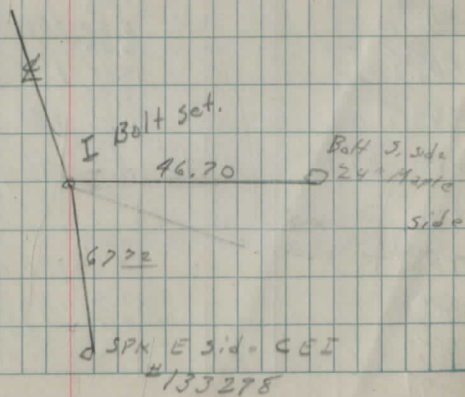 I Bolt set.
46.70
Bolt S. side
24" Maple
side
67 72
SPK E Side CEI
#133298